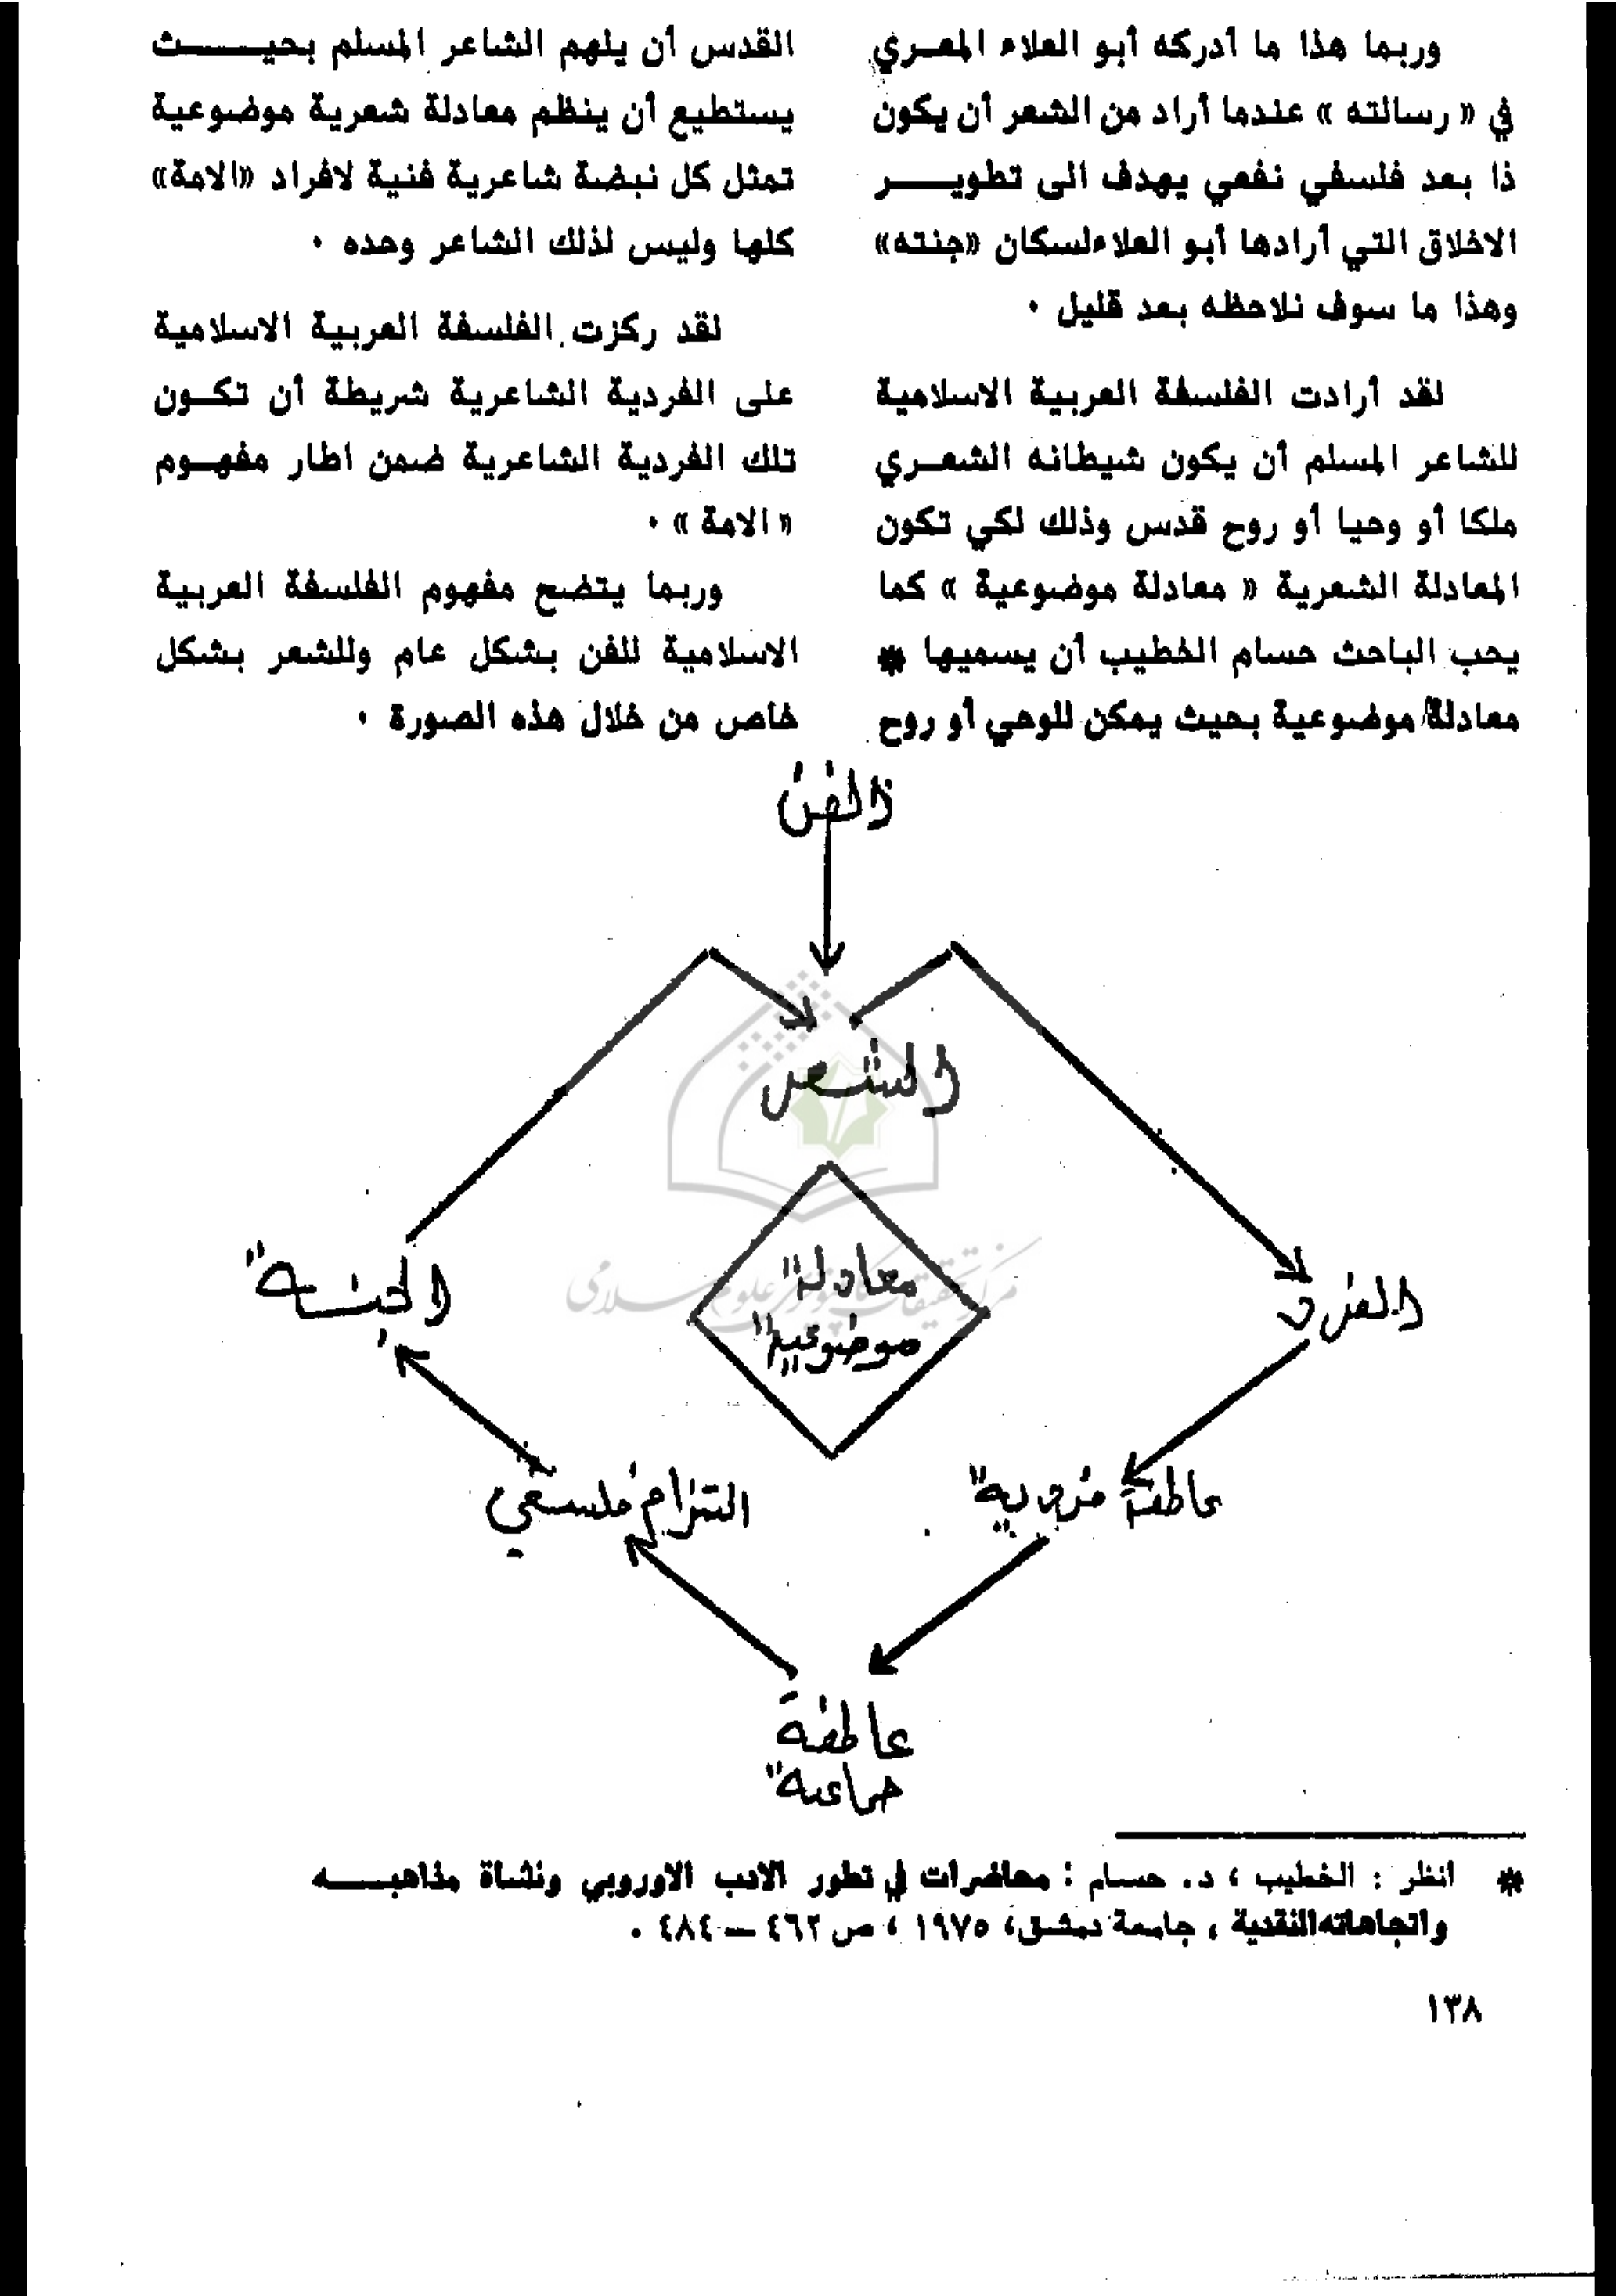 وربما هذا ما أدركه أبو العلاء المعري
في « رسالته » عندما أراد من الشعر أن يكون
ذا بعد فلسفي نفعي يهدف الى تطويـــر
الاخلاق التي أرادها أبو العلاءلسكان «جنته»
وهذا ما سوف نلاحظه بعد قليل ٠
لقد أرادت الفلسفة العربية الاسلامية
للشاعر المسلم أن يكون شيطانه الشعـري
ملكا أو وحيا أو روح قدس وذلك لكي تكون
المعادلة الشعرية « معادلة موضوعية » كما
يحب الباحث حسام الخطيب أن يسميها *
معادلة موضوعية بحيث يمكن للوحي أو روح
القدس أن يلهم الشاعر المسلم بحيـــــث
يستطيع أن ينظم معادلة شعرية موضوعية
تمثل كل نبضة شاعرية فنية لافراد «الامة»
كلها وليس لذلك الشاعر وحده ٠
لقد ركزت الفلسفة العربية الاسلامية
على الفردية الشاعرية شريطة أن تكـون
تلك الفردية الشاعرية ضمن اطار مفهـوم
« الامة » ٠
وربما يتضح مفهوم الفلسفة العربية
الاسلامية للفن بشكل عام وللشعر بشكل
خاص من خلال هذه الصورة ٠
الفن
الشعر
معادلة
موضوعية
الفرد
عاطفة فردية
التزام فلسفي
عاطفة
جماعية
مركز تحقيقات كامپيوتري علوم اسلامي
* انظر : الخطيب ، د. حسام : محاضرات في تطور الادب الاوروبي ونشأة مذاهبـــه
واتجاهاته النقدية ، جامعة دمشق، ١٩٧٥ ، ص ٤٦٢ — ٤٨٤ .
١٣٨